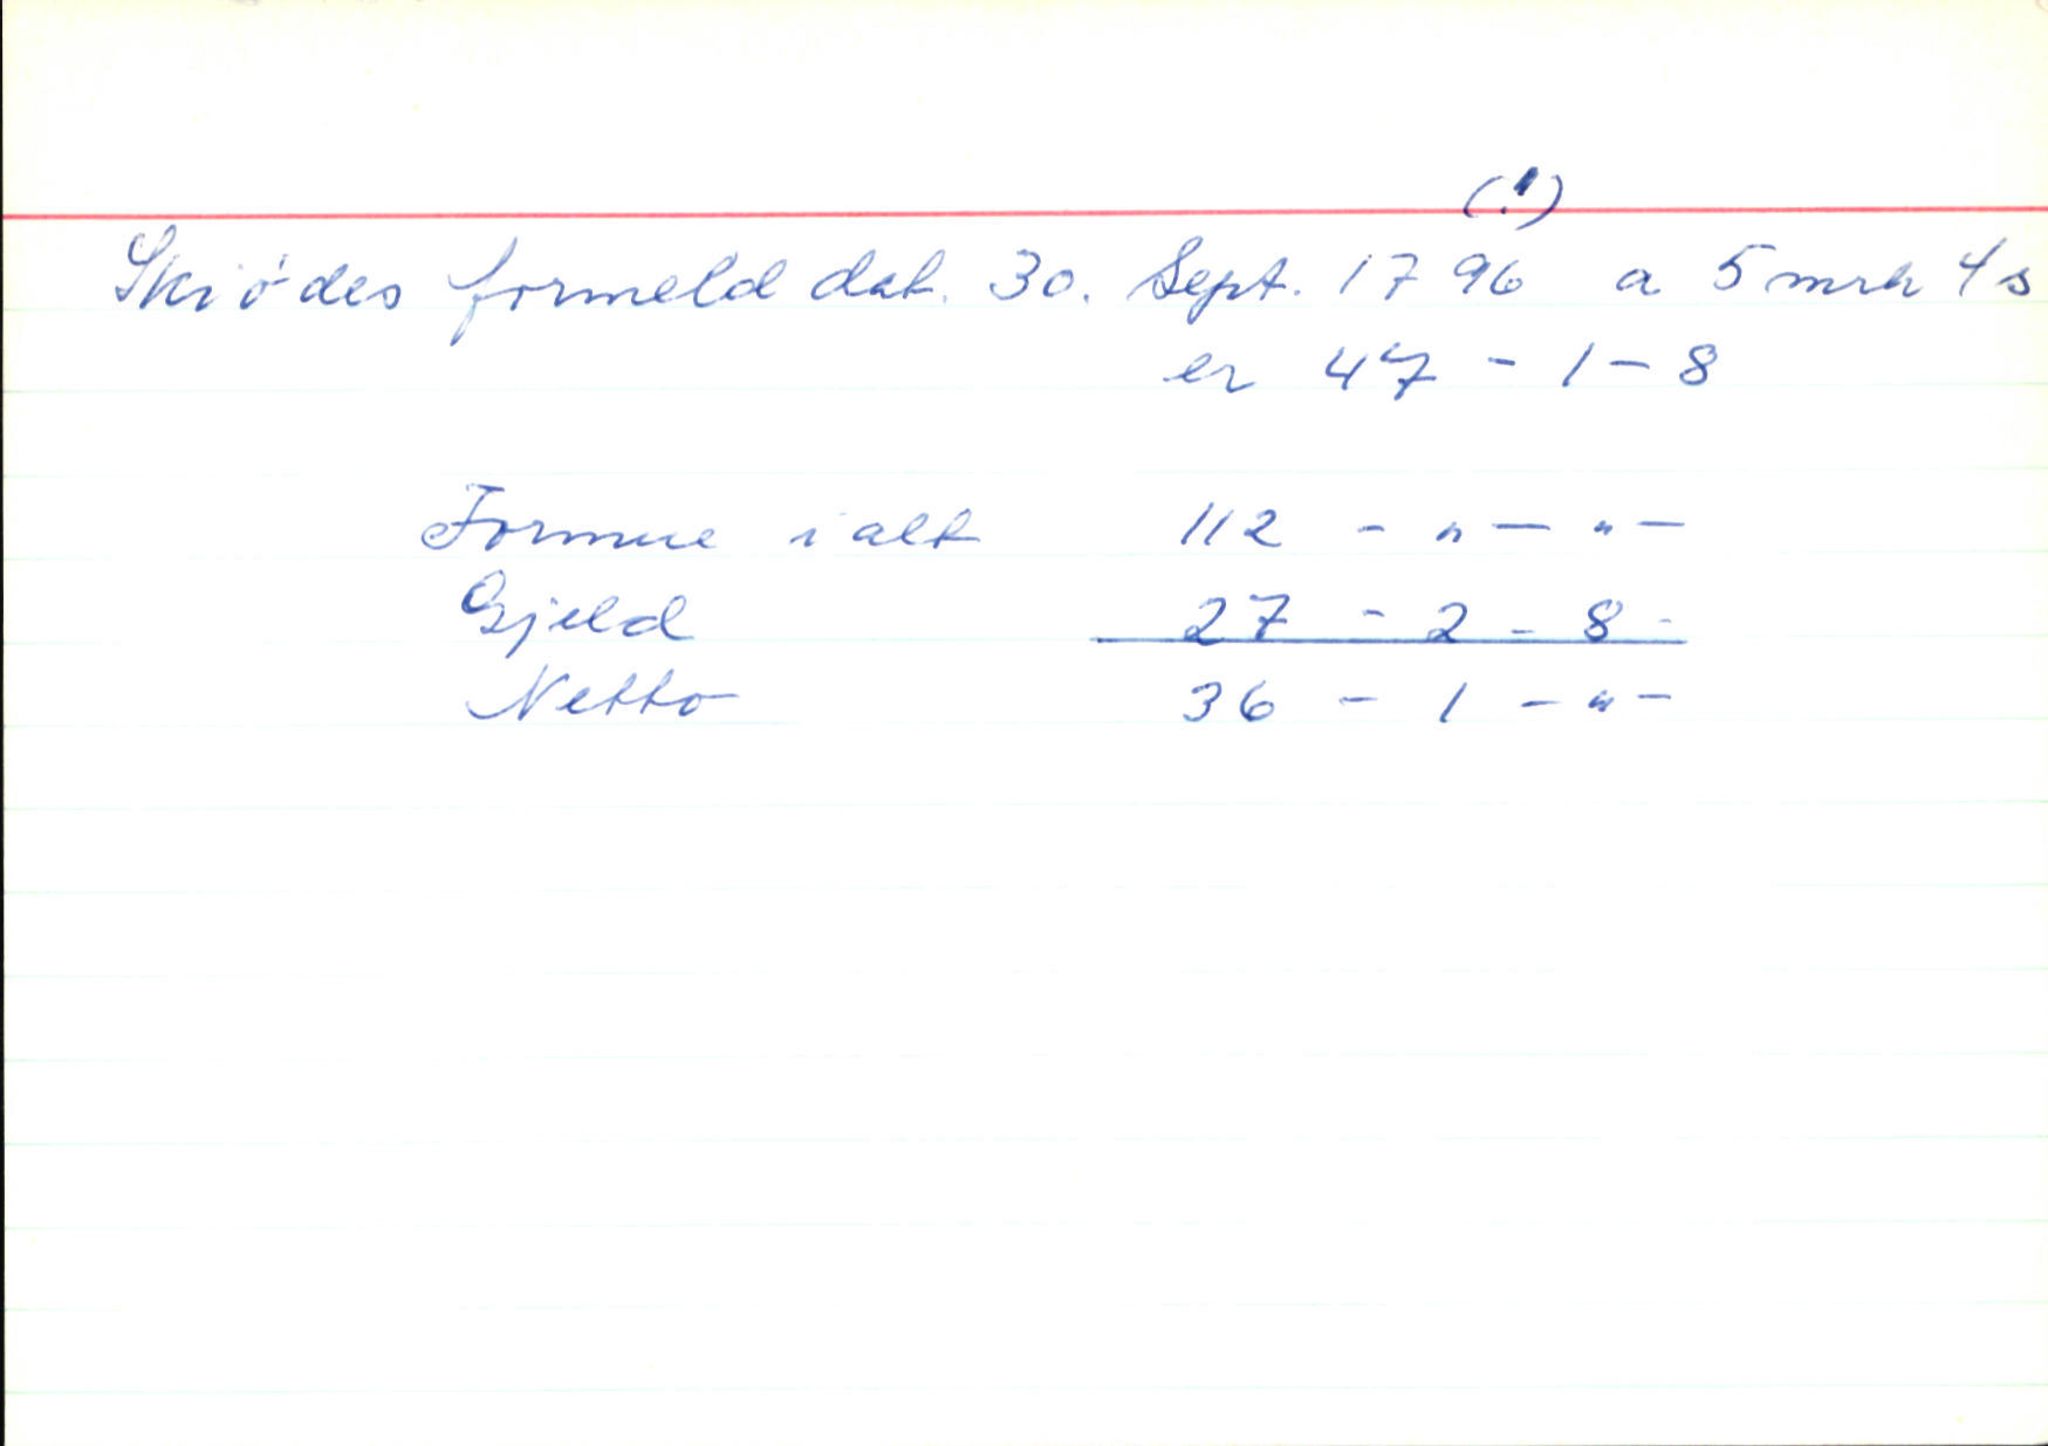 (!)
Skiødes formeld dat. 30. Sept. 1796 a 5 mrk 4 s
er 47 - 1 - 8
Formue i alt 112 - " - " -
Gjeld 27 - 2 - 8 -
Netto 36 - 1 - " -